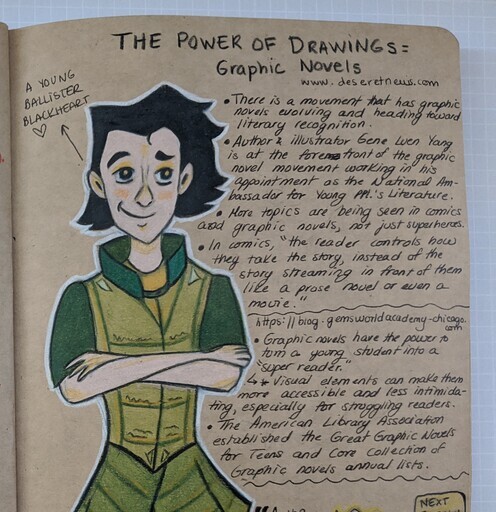 THE POWER OF DRAWINGS=
Graphic Novels
www.deseretnews.com
A YOUNG
BALLISTER
BLACKHEART
• There is a movement that has graphic
novels evolving and heading toward
literary recognition.
• Author & illustrator Gene Luen Yang
is at the forefront of the graphic
novel movement working in his
appointment as the National Am-
bassador for Young Ppl.'s Literature.
• More topics are being seen in comics
and graphic novels, not just superheroes.
• In comics, "the reader controls how
they take the story, instead of the
story streaming in front of them
like a prose novel or even a
movie."
https://blog.gemsworldacademy-chicago.
com
• Graphic novels have the power to
turn a young student into a
"super reader."
↳ * Visual elements can make them
more accessible and less intimida-
ting, especially for struggling readers.
• The American Library Association
established the Great Graphic Novels
for Teens and Core Collection of
Graphic novels annual lists.
NEXT